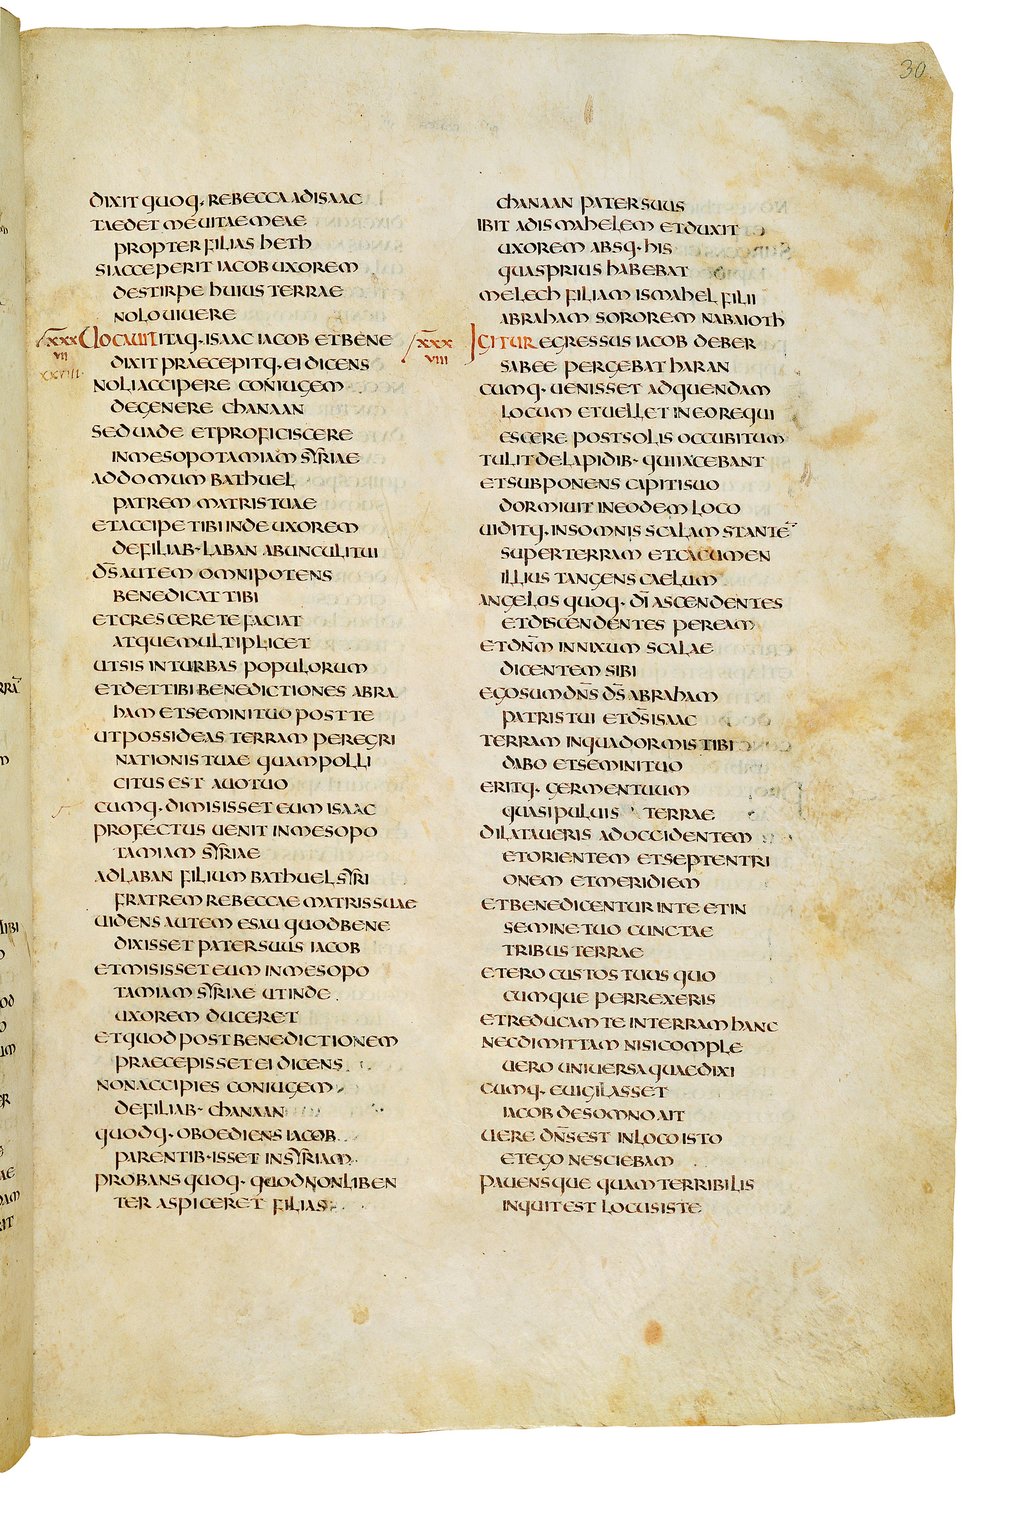 30
DIXIT QUOQ· REBECCA AD ISAAC
TAEDET ME UITAE MEAE
PROPTER FILIAS HETH
SI ACCEPERIT IACOB UXOREM
DE STIRPE HUIUS TERRAE
NOLO UIUERE
XXXVII UOCAUIT ITAQ· ISAAC IACOB ET BENE
XXVIII DIXIT PRAECEPITQ· EI DICENS
NOLI ACCIPERE CONIUGEM
DE GENERE CHANAAN
SED UADE ET PROFICISCERE
IN MESOPOTAMIAM SYRIAE
AD DOMUM BATHUEL
PATREM MATRIS TUAE
ET ACCIPE TIBI INDE UXOREM
DE FILIAB· LABAN ABUNCULI TUI
D̄S AUTEM OMNIPOTENS
BENEDICAT TIBI
ET CRESCERE TE FACIAT
ATQUE MULTIPLICET
UT SIS IN TURBAS POPULORUM
ET DET TIBI BENEDICTIONES ABRA
HAM ET SEMINI TUO POST TE
UT POSSIDEAS TERRAM PEREGRI
NATIONIS TUAE QUAM POLLI
CITUS EST AUO TUO
CUMQ· DIMISISSET EUM ISAAC
PROFECTUS UENIT IN MESOPO
TAMIAM SYRIAE
AD LABAN FILIUM BATHUEL SYRI
FRATREM REBECCAE MATRIS SUAE
UIDENS AUTEM ESAU QUOD BENE
DIXISSET PATER SUUS IACOB
ET MISISSET EUM IN MESOPO
TAMIAM SYRIAE UT INDE
UXOREM DUCERET
ET QUOD POST BENEDICTIONEM
PRAECEPISSET EI DICENS
NON ACCIPIES CONIUGEM
DE FILIAB· CHANAAN
QUODQ· OBOEDIENS IACOB
PARENTIB· ISSET IN SYRIAM
PROBANS QUOQ· QUOD NON LIBEN
TER ASPICERET FILIAS
CHANAAN PATER SUUS
IBIT AD ISMAHELEM ET DUXIT
UXOREM ABSQ· HIS
QUAS PRIUS HABEBAT
MELECH FILIAM ISMAHEL FILII
ABRAHAM SOROREM NABAIOTH
XXXVIII IGITUR EGRESSUS IACOB DE BER
SABEE PERGEBAT HARAN
CUMQ· UENISSET AD QUENDAM
LOCUM ET UELLET IN EO REQUI
ESCERE POST SOLIS OCCUBITUM
TULIT DE LAPIDIB· QUI IACEBANT
ET SUBPONENS CAPITI SUO
DORMIUIT IN EODEM LOCO
UIDITQ· IN SOMNIS SCALAM STANTĒ
SUPER TERRAM ET CACUMEN
ILLIUS TANGENS CAELUM
ANGELOS QUOQ· D̄I ASCENDENTES
ET DISCENDENTES PER EAM
ET DN̄M INNIXUM SCALAE
DICENTEM SIBI
EGO SUM DN̄S D̄S ABRAHAM
PATRIS TUI ET D̄S ISAAC
TERRAM IN QUA DORMIS TIBI
DABO ET SEMINI TUO
ERITQ· GERMEN TUUM
QUASI PULUIS TERRAE
DILATAUERIS AD OCCIDENTEM
ET ORIENTEM ET SEPTENTRI
ONEM ET MERIDIEM
ET BENEDICENTUR IN TE ET IN
SEMINE TUO CUNCTAE
TRIBUS TERRAE
ET ERO CUSTOS TUUS QUO
CUMQUE PERREXERIS
ET REDUCAM TE IN TERRAM HANC
NEC DIMITTAM NISI COMPLE
UERO UNIUERSA QUAE DIXI
CUMQ· EUIGILASSET
IACOB DE SOMNO AIT
UERE DN̄S EST IN LOCO ISTO
ET EGO NESCIEBAM
PAUENSQUE QUAM TERRIBILIS
INQUIT EST LOCUS ISTE